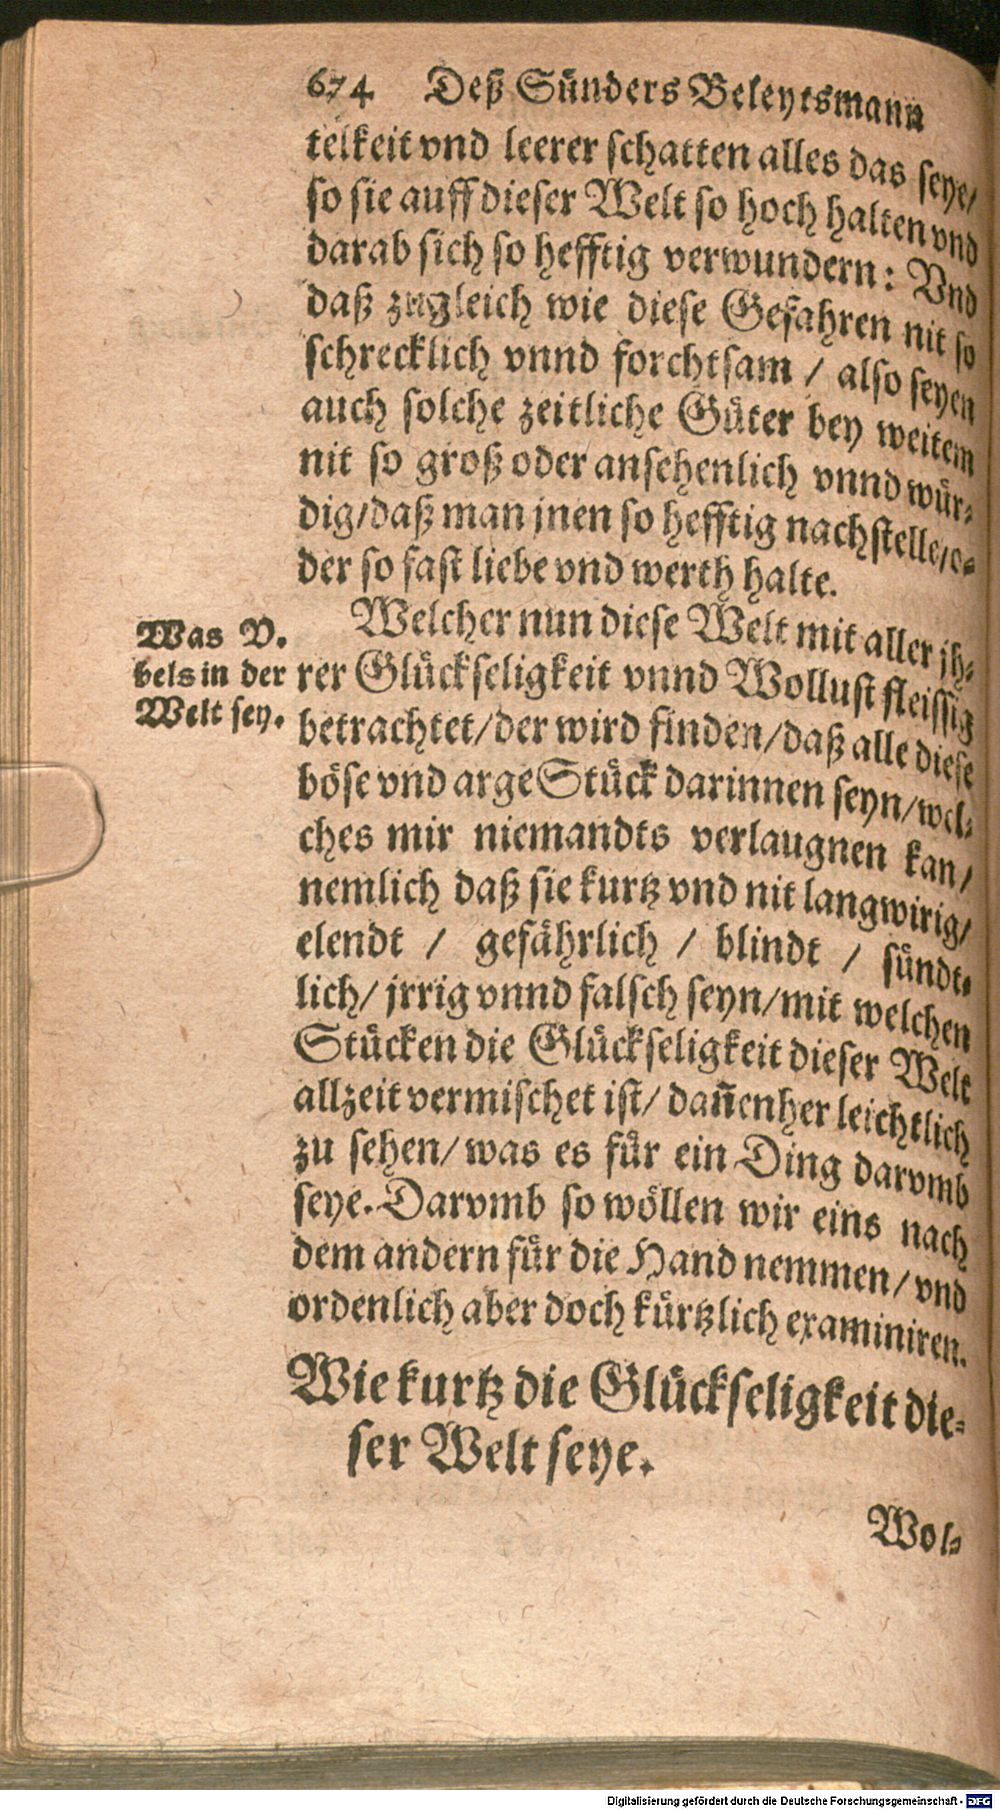 674 Deß Sünders Beleytsmann
telkeit vnd leerer schatten alles das seye/
so sie auff dieser Welt so hoch halten vnd
darab sich so hefftig verwundern: Vnd
daß zugleich wie diese Gefahren nit so
schrecklich vnnd forchtsam / also seyen
auch solche zeitliche Güter bey weitem
nit so groß oder ansehenlich vnnd wür-
dig/daß man jnen so hefftig nachstelle/o-
der so fast liebe vnd werth halte.
Welcher nun diese Welt mit aller jh-
rer Glückseligkeit vnnd Wollust fleissig
betrachtet/der wird finden/daß alle diese
böse vnd arge Stück darinnen seyn/wel-
ches mir niemandts verlaugnen kan/
nemlich daß sie kurtz vnd nit langwirig/
elendt / gefährlich / blindt / sündt-
lich/ jrrig vnnd falsch seyn/mit welchen
Stücken die Glückseligkeit dieser Welt
allzeit vermischet ist/ dañenher leichtlich
zu sehen/was es für ein Ding darvmb
seye. Darvmb so wöllen wir eins nach
dem andern für die Hand nemmen/vnd
ordenlich aber doch kürtzlich examiniren.
Was V-
bels in der
Welt sey.
Wie kurtz die Glückseligkeit die-
ser Welt seye.
Wol-
Digitalisierung gefördert durch die Deutsche Forschungsgemeinschaft - DFG